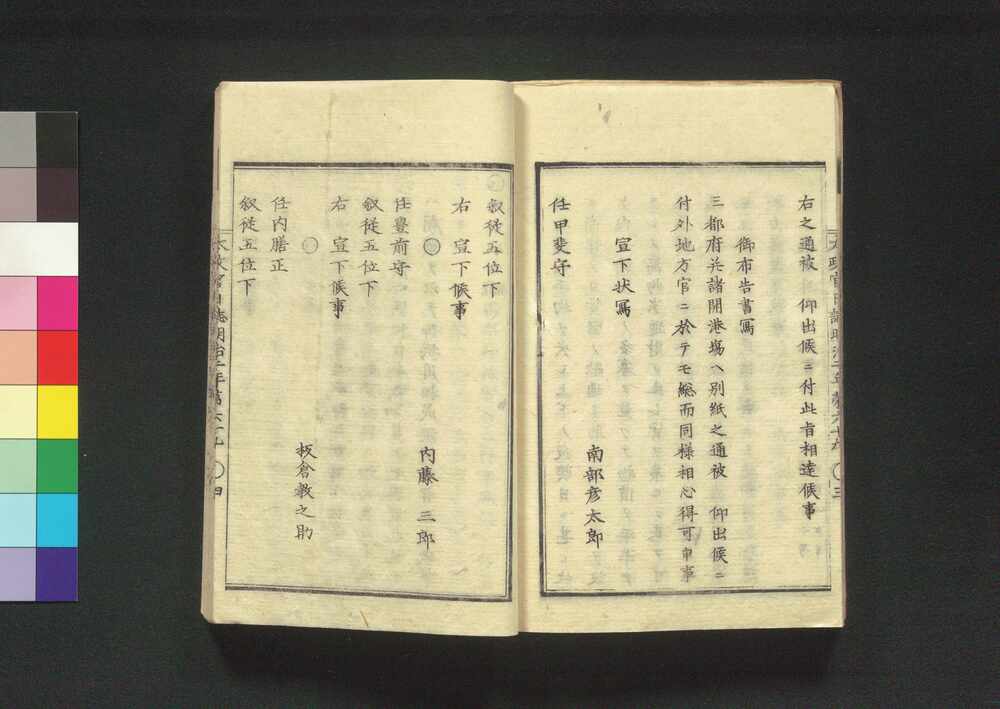 右之通被 仰出候ニ付此旨相達候事
御布告書写
三都府并諸開港場ヘ別紙之通被 仰出候ニ
付外地方官ニ於テモ総而同様相心得可申事
宣下状写
南部彦太郎
任甲斐守
叙従五位下
右 宣下候事
〇
内藤 三郎
任豊前守
叙従五位下
右 宣下候事
〇
板倉教之助
任内膳正
叙従五位下